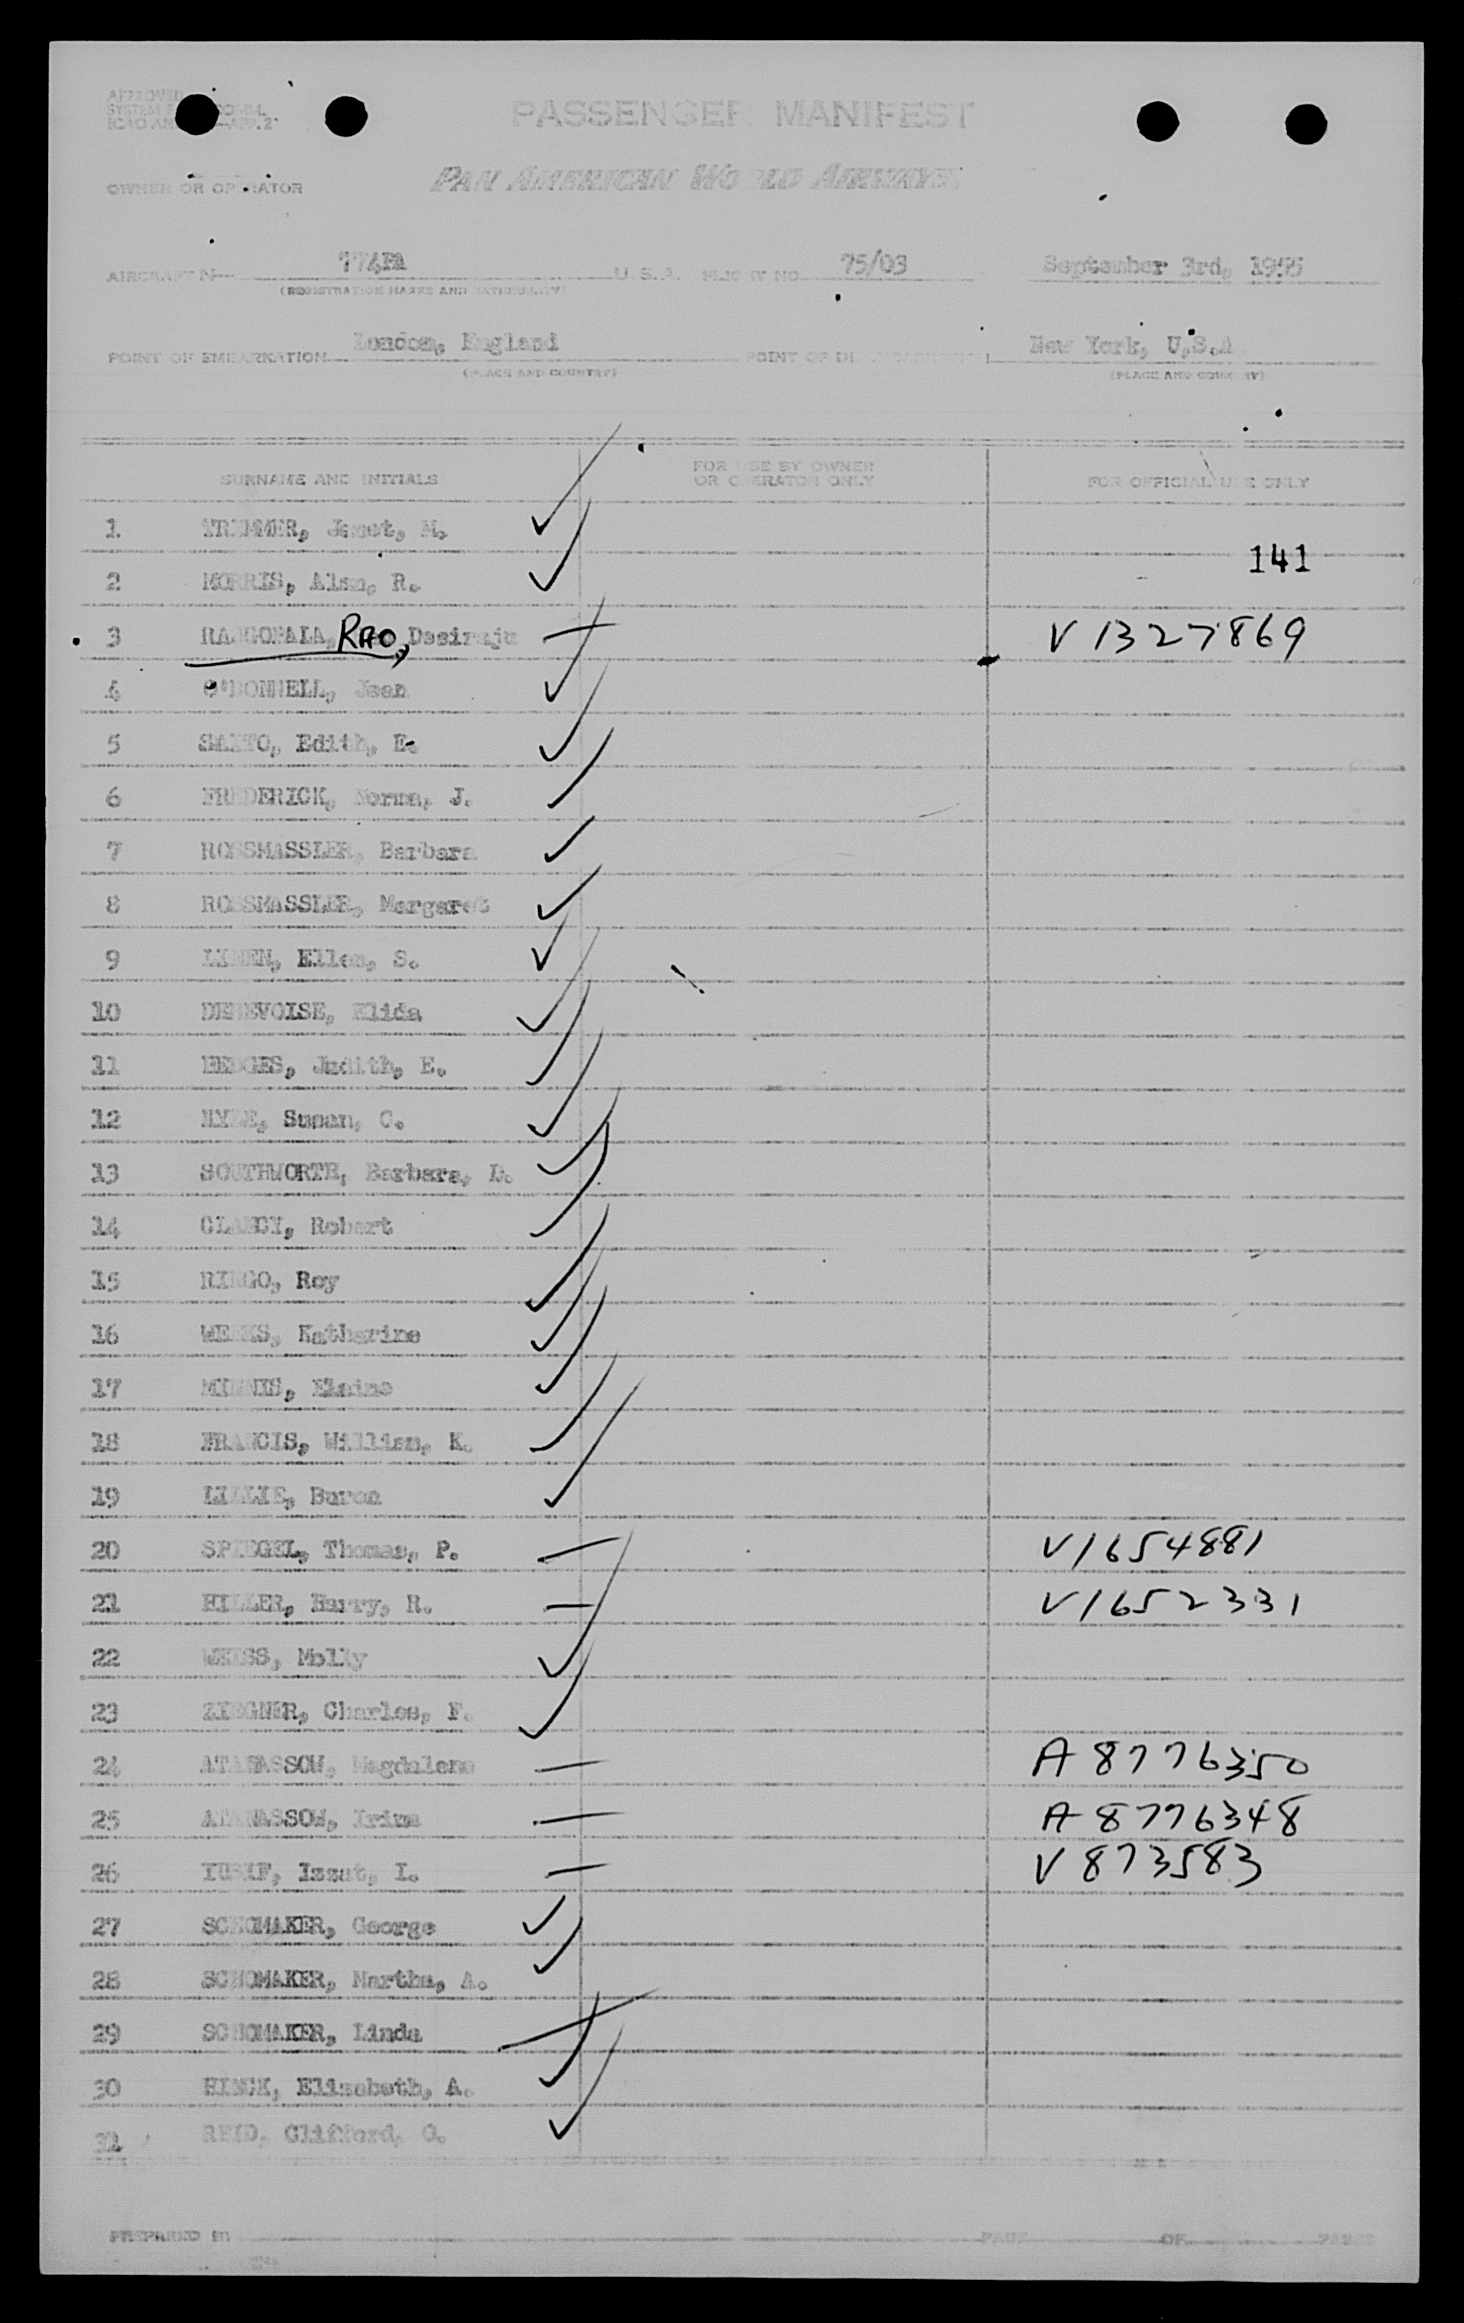 APPROVED
PASSENGER MANIFEST
PAN AMERICAN WORLD AIRWAYS
OWNER OR OPERATOR
AIRCRAFT N 774PA U.S.A. FLIGHT NO. 75/03 September 3rd, 1955
(REGISTRATION MARKS AND NATIONALITY)
POINT OF EMBARKATION London, England POINT OF New York, U.S.A
(PLACE AND COUNTRY) (PLACE AND COUNTRY)
SURNAME AND INITIALS FOR USE BY OWNER OR OPERATOR ONLY FOR OFFICIAL USE ONLY
1 TRIMMER, Janet, M.
141
2 MORRIS, Alan, R.
3 RAJGOPALA, RAO, Desiraju V1327869
4 O'DONNELL, Jean
5 Edith, E.
6 FREDERICK, Norma, J.
7 ROSSMASSLER, Barbara
8 ROSSMASSLER, Margaret
9 LINEN, Ellen, S.
10 DEBEVOISE, Elida
11 HEDGES, Judith, E.
12 HYDE, Susan, C.
13 SOUTHWORTH, Barbara, D.
14 CLANCY, Robert
15 RINGO, Roy
16 WEEKS, Katharine
17 Elaine
18 FRANCIS, William, K.
19 LILLIE, Buron
20 SPIEGEL, Thomas, P. V1654881
21 HILLER, Harry, R. V1652331
22 WEISS, Molly
23 ZIEGNER, Charles, F.
24 ATANASSOW, Magdalena A8776350
25 ATANASSOW, Irina A8776348
26 YUSIF, Izzat, I. V873583
27 SCHOMAKER, George
28 SCHOMAKER, Martha, A.
29 SCHOMAKER, Linda
30 HINCK, Elizabeth, A.
31 REID, Clifford, O.
PREPARED BY PAGE OF PAGES